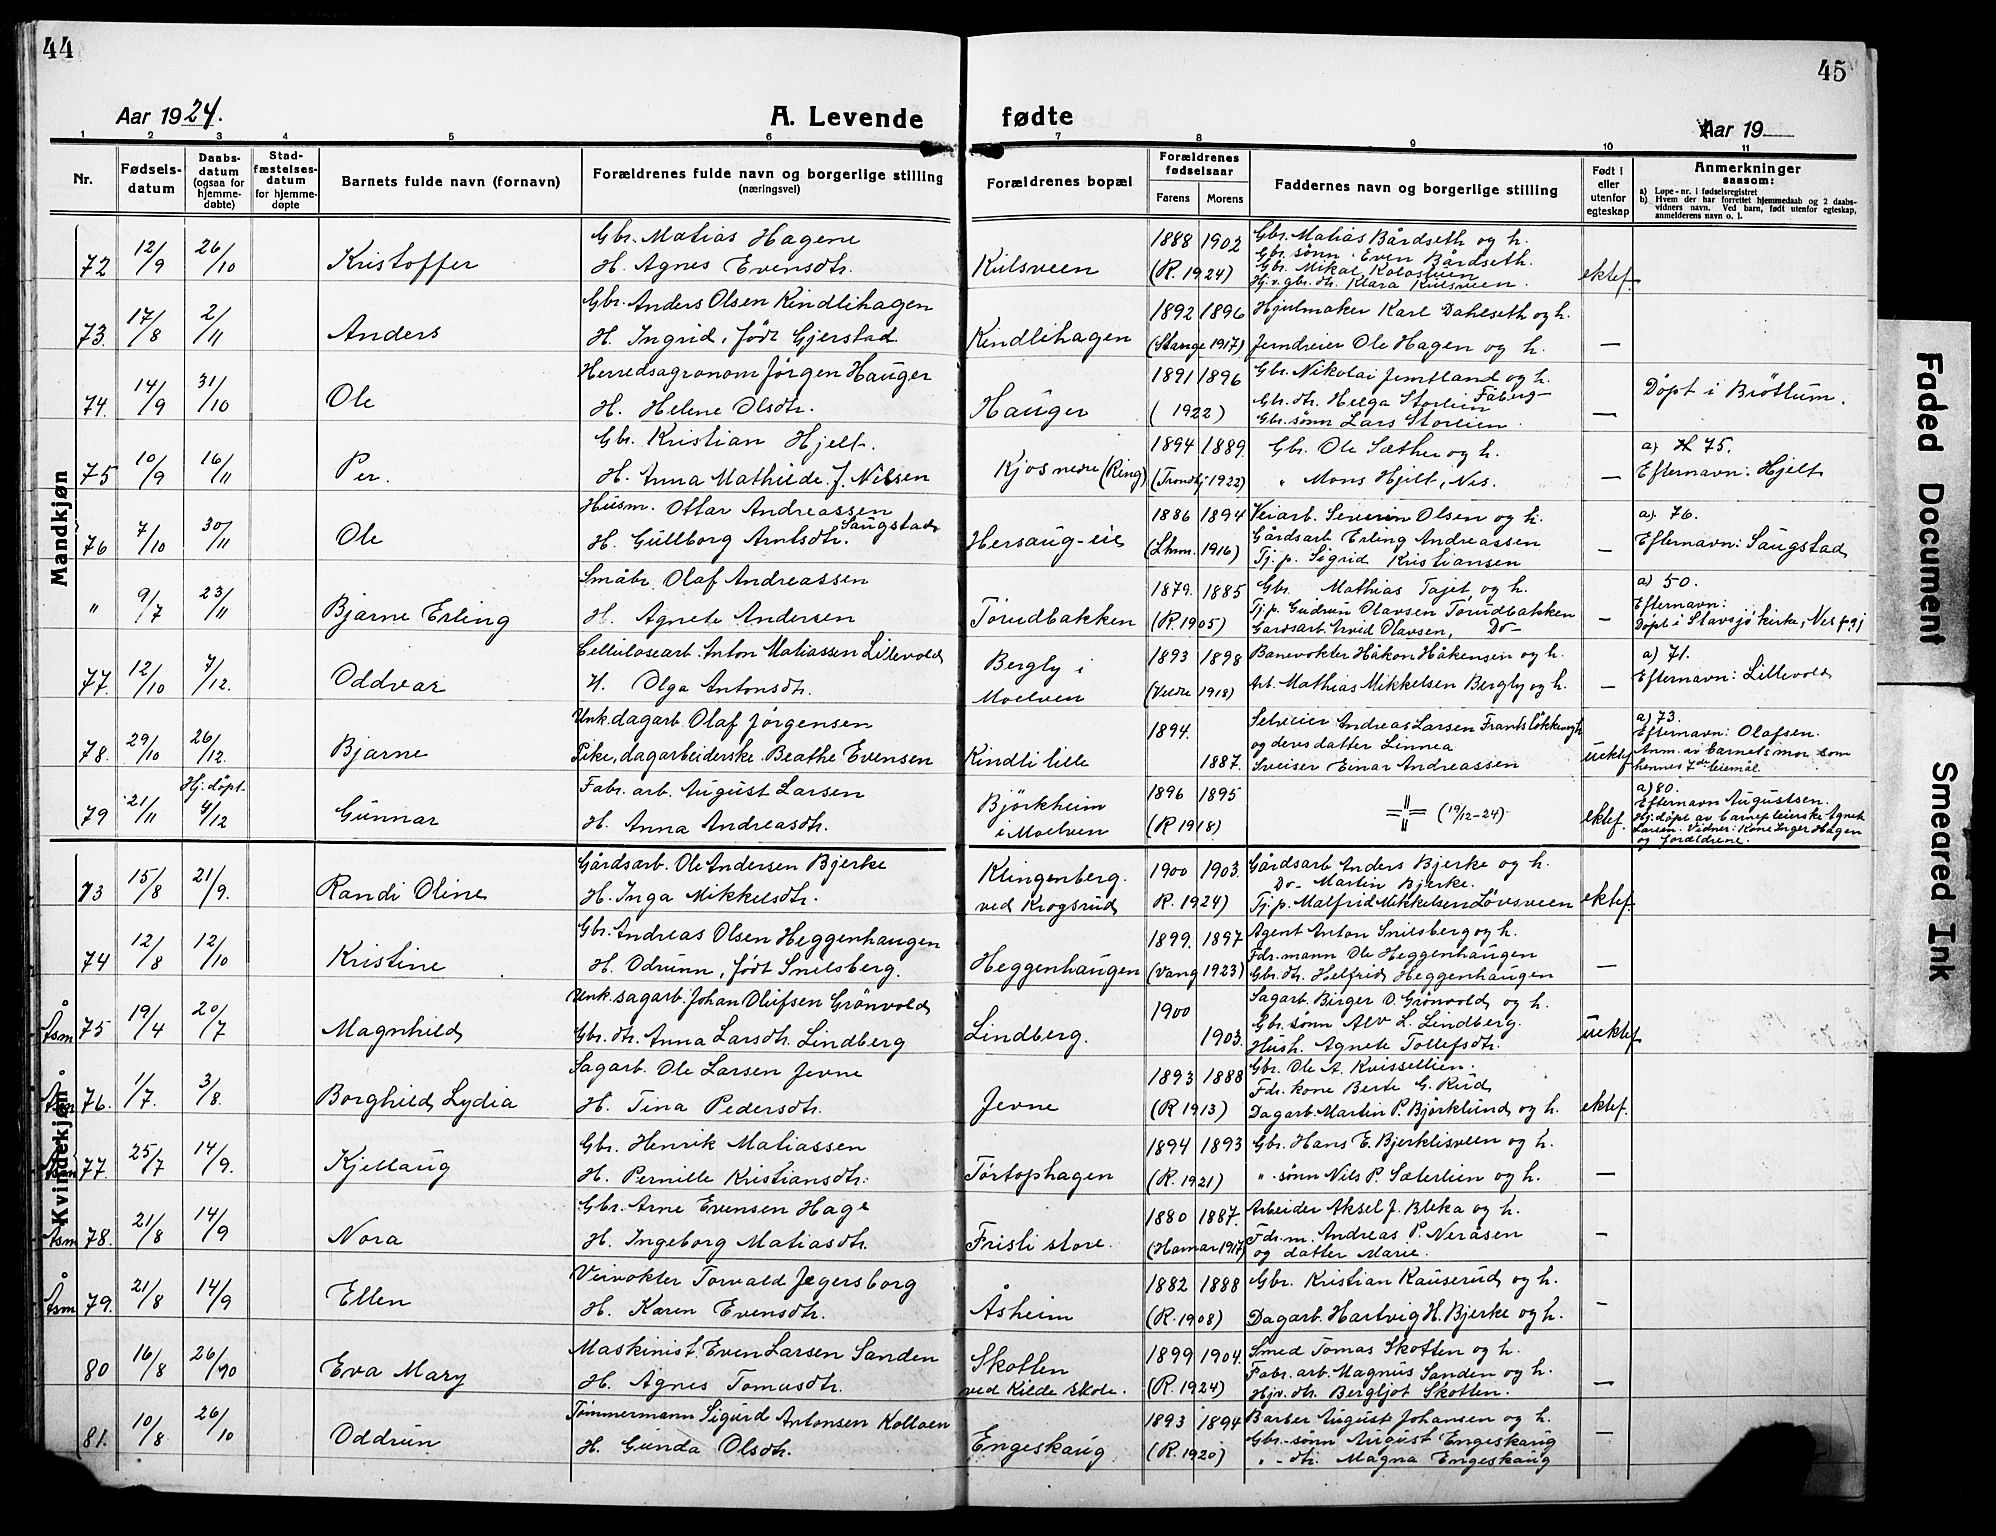 44
45
Aar 1924.
A. Levende fødte
Aar 19
1 2 3 4 5 6 7 8 9 10 11
Nr.
Fødsels-datum
Daabs-datum (ogsaa for hjemme-døbte)
Stad-fæstelses-datum for hjemme-døpte
Barnets fulde navn (fornavn)
Forældrenes fulde navn og borgerlige stilling (næringsvei)
Forældrenes bopæl
Forældrenes fødselsaar
Farens Morens
Faddernes navn og borgerlige stilling
Født i eller utenfor egteskap
Anmerkninger saasom:
a) Løpe-nr. i fødselsregistret
b) Hvem der har forrettet hjemmedaab og 2 daabsvidners navn. Ved barn, født utenfor egteskap, anmelderens navn o. l.
Mandkjøn
72 12/9 26/10 Kristoffer
Gbr. Matias Hagene
H. Agnes Evensdtr.
Kulsveen
1888 1902
(R. 1924)
Gbr. Matias Bårdseth og h.
Gbr. sønn Even Bårdseth.
Gbr. Mikal Kolostuen
Hj.v. gbr. dtr. Klara Kulsveen.
ektef.
73. 17/8 2/11 Anders
Gbr. Anders Olsen Kindlihagen
H. Ingrid, født Gjerstad
Kindlihagen
1892 1896
(Stange 1917)
Hjulmaker Karl Dahlseth og h.
Jerndreier Ole Hagen og h.
—
74. 14/9 31/10 Ole
Herredsagronom Jørgen Hauger
H. Helene Olsdtr.
Hauger
1891 1896
( 1922)
Gbr. Nikolai Jemtland og h.
Gbr. dtr. Helga Storlien Fåberg
Gbr. sønn Lars Storlien.
—
Döpt i Bröttum.
75 10/9 16/11 Per.
Gbr. Kristian Hjelt.
H. Anna Mathilde f. Nilsen
Kjos nedre (Ring)
1894 1889.
(Trondhj 1922)
Gbr. Ole Sæther og h.
" Mons Hjelt, Nes.
—
a) 75.
Efternavn: Hjelt
76 7/10 30/11 Ole
Husm. Ottar Andreassen Saugstad
H. Gullborg Arntsdtr.
Hersaug-eie
1886 1894
(Lhm. 1916)
Veiarb. Severin Olsen og h.
Gårdsarb. Erling Andreassen
Tj. p. Sigrid Kristiansen
—
a) 76.
Efternavn: Saugstad
" 9/7 23/11 Bjarne Erling
Småbr. Olaf Andreassen
H. Agnete Andersen
Torudbakken
1879. 1885
(R. 1905)
Gbr. Mathias Tajet, og h.
Tj. p. Gudrun Olavsen Torudbakken
Gårdsarb. Arvid Olavsen, Do-
—
a) 50.
Efternavn:
Döpt i Stavsjö kirke, Nes pgj
77. 12/10 7/12. Oddvar
Cellulosearb. Anton Matiassen Lillevold
H. Olga Antonsdtr.
Bergly i
Moelven
1893 1898
(Veldre 1918)
Banevokter Håkon Håkensen og h.
Arb. Mathias Mikkelsen Bergly og h.
—
a) 71.
Efternavn: Lillevold
78. 29/10 26/12. Bjarne
Unk. dagarb. Olaf Jørgensen
Pike, dagarbeiderske Beathe Evensen
Kindli lille
1894.
1887.
Selveier Andreas Larsen Frandsløkken og h
og deres datter Linnea
Sveiser Einar Andreassen
uektef
a) 73.
Efternavn: Olafsen.
Anm. av barnets mor som
hennes 7de leiemål.
79 21/11 Hj. döpt 4/12 Gunnar
Fabr. arb. August Larsen
H. Anna Andreasdtr.
Björkheim
i Moelven
1896 1895
(R 1918)
(19/12-24)
ektef.
a) 80.
Efternavn Augustsen.
Hj. döpt av barnepleierske Agnete
Larsen. Vidner: Kone Inger Hagen
og forældrene.
Kvindekjøn
73 15/8 21/9. Randi Oline
Gårdsarb. Ole Andersen Bjerke
H. Inga Mikkelsdtr.
Klingenberg.
ved Krogsrud
1900 1903.
R. 1924)
Gårdsarb Anders Bjerke og h.
Do- Martin Bjerke.
Tj. p. Malfrid Mikkelsen Lövsveen
ektef.
74 12/8 12/10 Kristine
Gbr. Andreas Olsen Heggenhaugen
H. Odrunn, født Snilsberg.
Heggenhaugen
1899. 1897
(Vang 1923)
Agent Anton Snilsberg og h.
Fdr. mann Ole Heggenhaugen
Gbr. dtr. Helfrid Heggenhaugen
—
Åsm 75 19/4 20/7 Magnhild
Unk. sagarb. Johan Olufsen Grönvold
Gbr. dtr. Anna Larsdtr. Lindberg
Lindberg.
1900
1903.
Sagarb. Birger O. Grönvold og h.
Gbr. sønn Alv L. Lindberg.
Hush. Agnete Tollefsdtr.
uektef.
Åsm 76. 1/7. 3/8. Borghild Lydia
Sagarb. Ole Larsen Jevne
H. Tina Pedersdtr.
Jevne
1893 1888
(R 1913)
Gbr. Ole A. Kvissellien.
Fdr. kone Berte G. Rud
Dagarb. Martin P. Björklund og h.
ektef.
Åsm 77. 25/7 14/9. Kjellaug
Gbr. Henrik Matiassen
H. Pernille Kristiansdtr.
Tortophagen
1894 1893
(R. 1921)
Gbr. Hans E. Bjerklisveen og h.
" sønn Nils P. Sæterlien og h.
—
Åsm 78. 21/8 14/9 Nora
Gbr. Arne Evensen Hage
H. Ingeborg Matiasdtr.
Fristi store.
1880 1887.
(Hamar 1917)
Arbeider Aksel J. Bleka og h.
Fdr. m. Andreas P. Neråsen
og datter Marie.
—
Åsm 79. 21/8 14/9 Ellen
Veivokter Torvald Jegersborg
H. Karen Evensdtr.
Åsheim
1882 1888
(R. 1908)
Gbr. Kristian Kauserud og h.
Dagarb. Hartvig H. Bjerke og h.
—
80 16/8 26/10 Eva Mary
Maskinist. Even Larsen Sanden
H. Agnes Tomasdtr.
Skotten
ved Kilde skole.
1899 1904.
(R. 1924)
Smed Tomas Skotten og h.
Fabr. arb. Magnus Sanden og h.
Hjv. dtr. Bergljot Skotten.
—
81. 10/8 26/10 Oddrun
Tømmermann Sigurd Antonsen Kolloen
H. Gunda Olsdtr.
Engeskaug
1893 1894
(R. 1920)
Barber August Johansen og h.
Gbr-sønn August Engeskaug
" -dtr. Magna Engeskaug
—
Faded Document
Smeared Ink